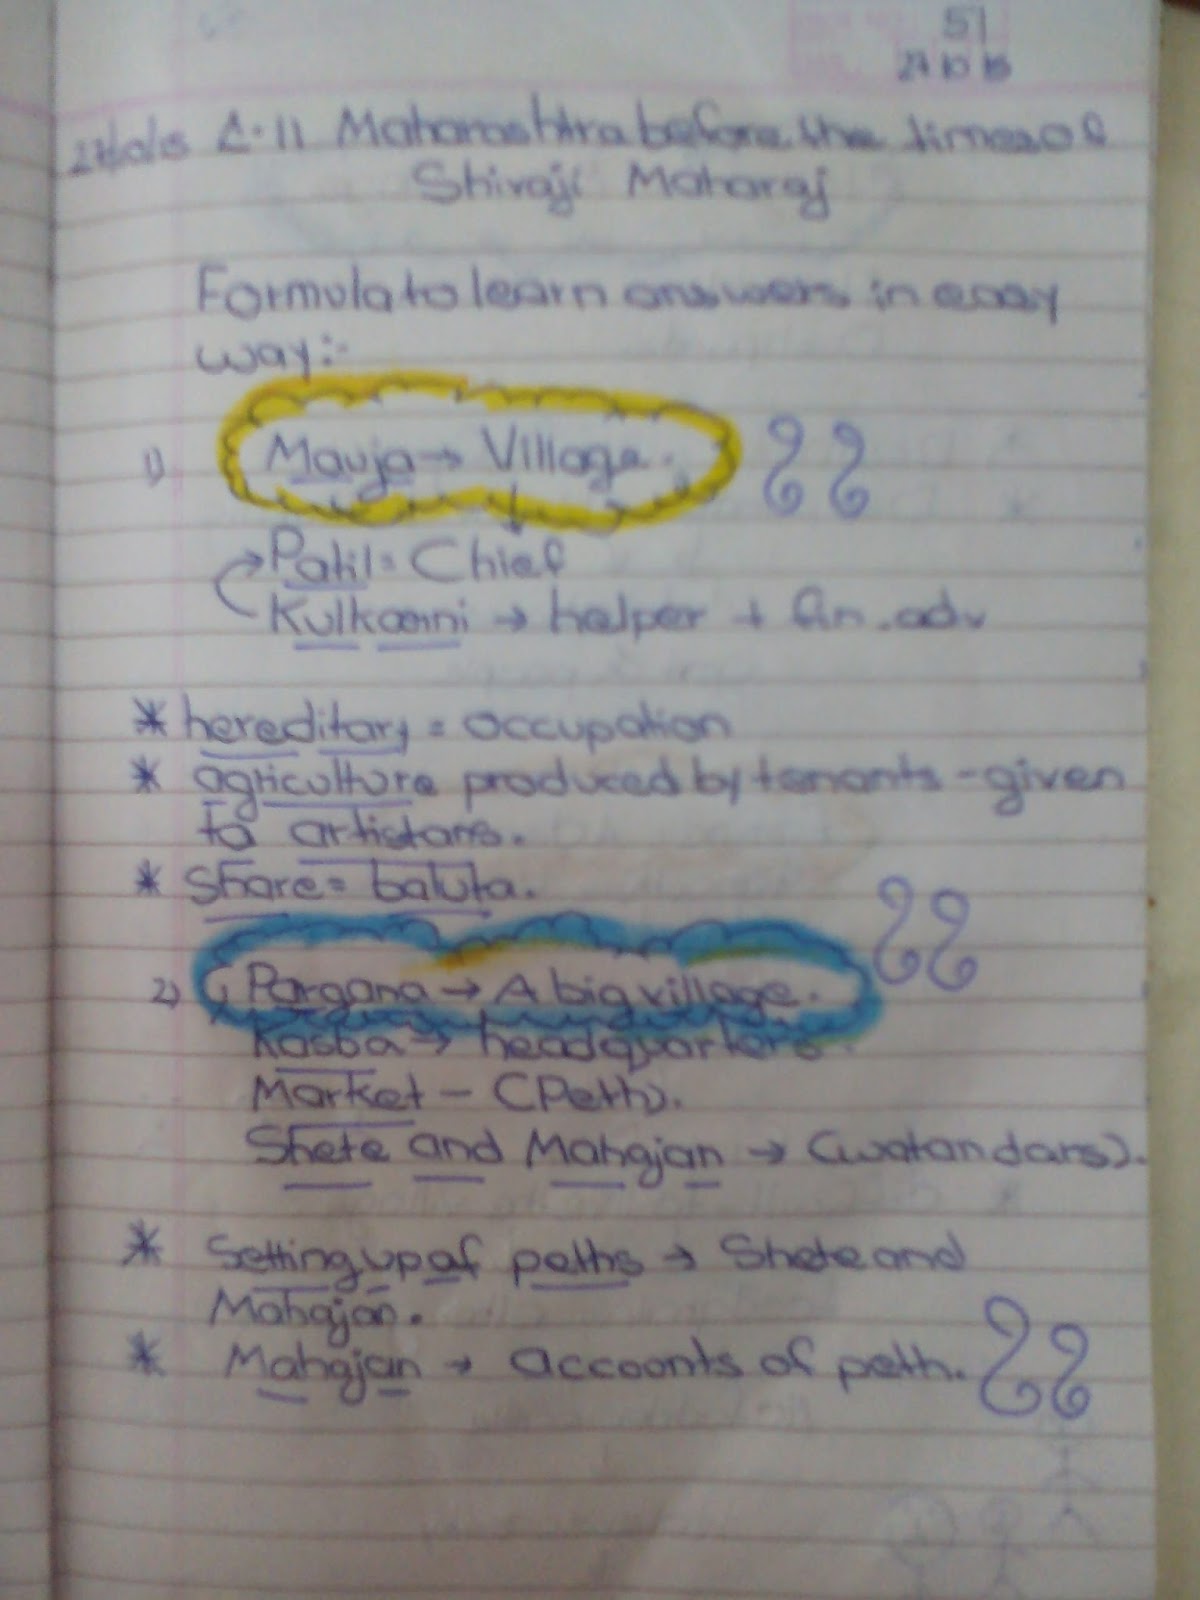 51
27 10 15
27/10/15 L.11 Maharashtra before the times of
Shivaji Maharaj
Formula to learn answers in easy
way:-
1) Mauja → Village.
Patil = Chief
Kulkarni → helper + fin. adv
* hereditary = occupation
* agriculture produced by tenants - given
to artistans.
* Share = baluta.
2) Pargana → A big village.
Kasba → headquarters.
Market - (Peth).
Shete and Mahajan → (watandars).
* Setting up of peths → Shete and
Mahajan.
* Mahajan → accounts of peth.